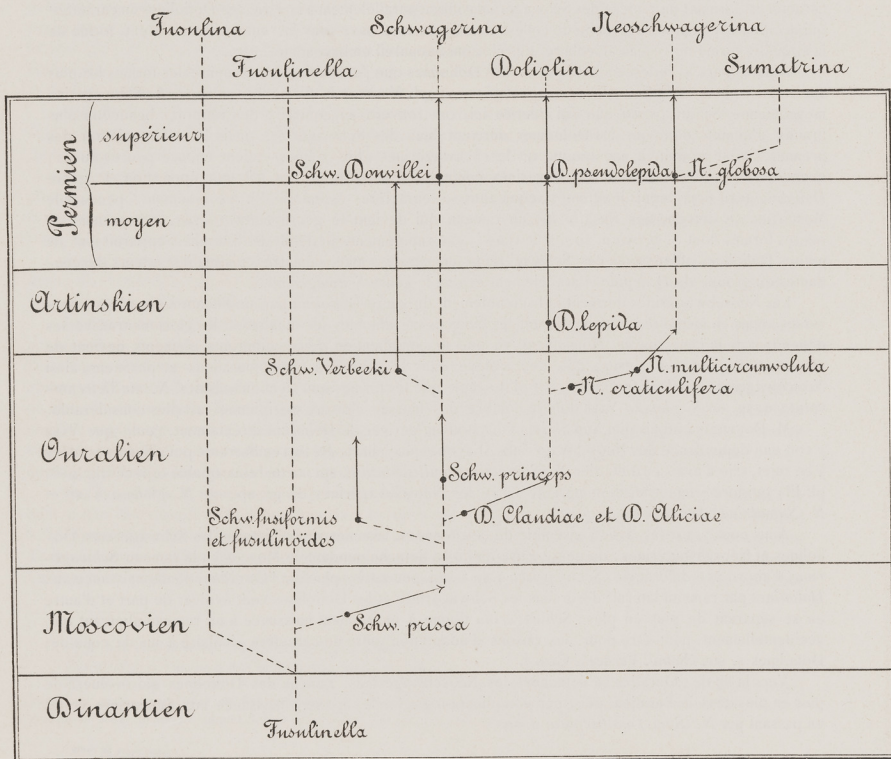 Fusulina
Schwagerina
Neoschwagerina
Fusulinella
Doliolina
Sumatrina
Permien
supérieur
Schw. Douvillei
D. pseudolepida
N. globosa
moyen
Artinskien
D. lepida
Schw. Verbeeki
N. multicircumvoluta
N. craticulifera
Ouralien
Schw. princeps
Schw. fusiformis
et fusulinoïdes
D. Claudiae et D. Aliciae
Moscovien
Schw. prisca
Dinantien
Fusulinella